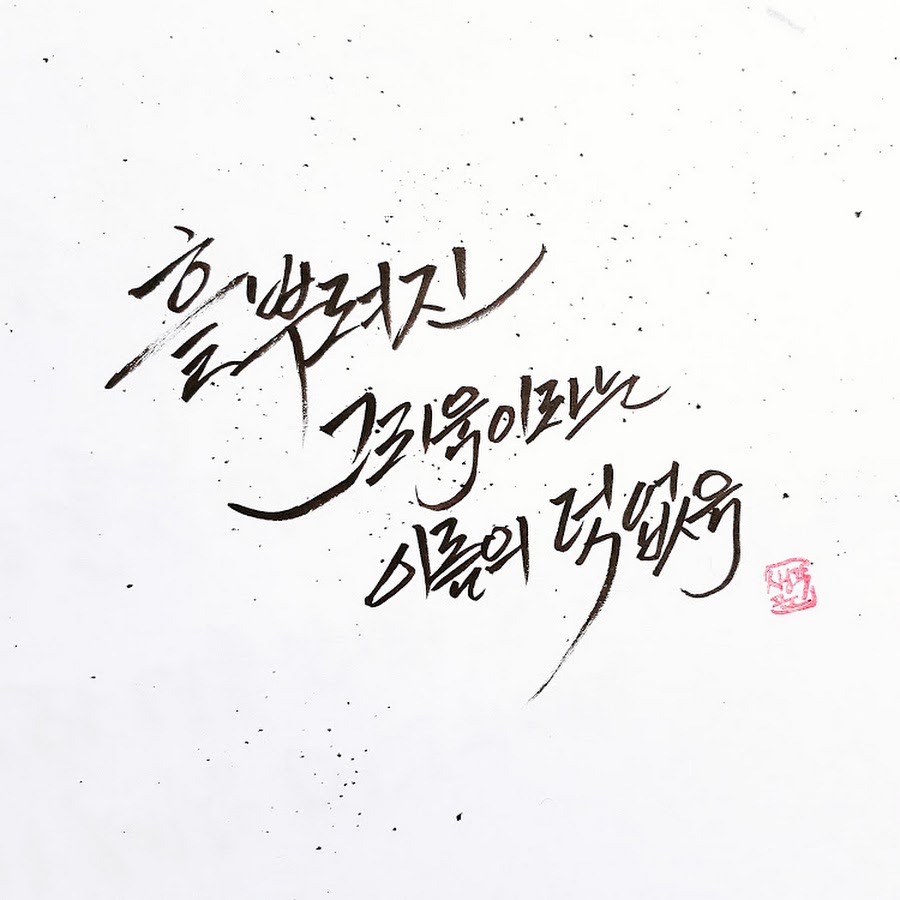 흩뿌려진
그리움이라는
이름의 덧없음